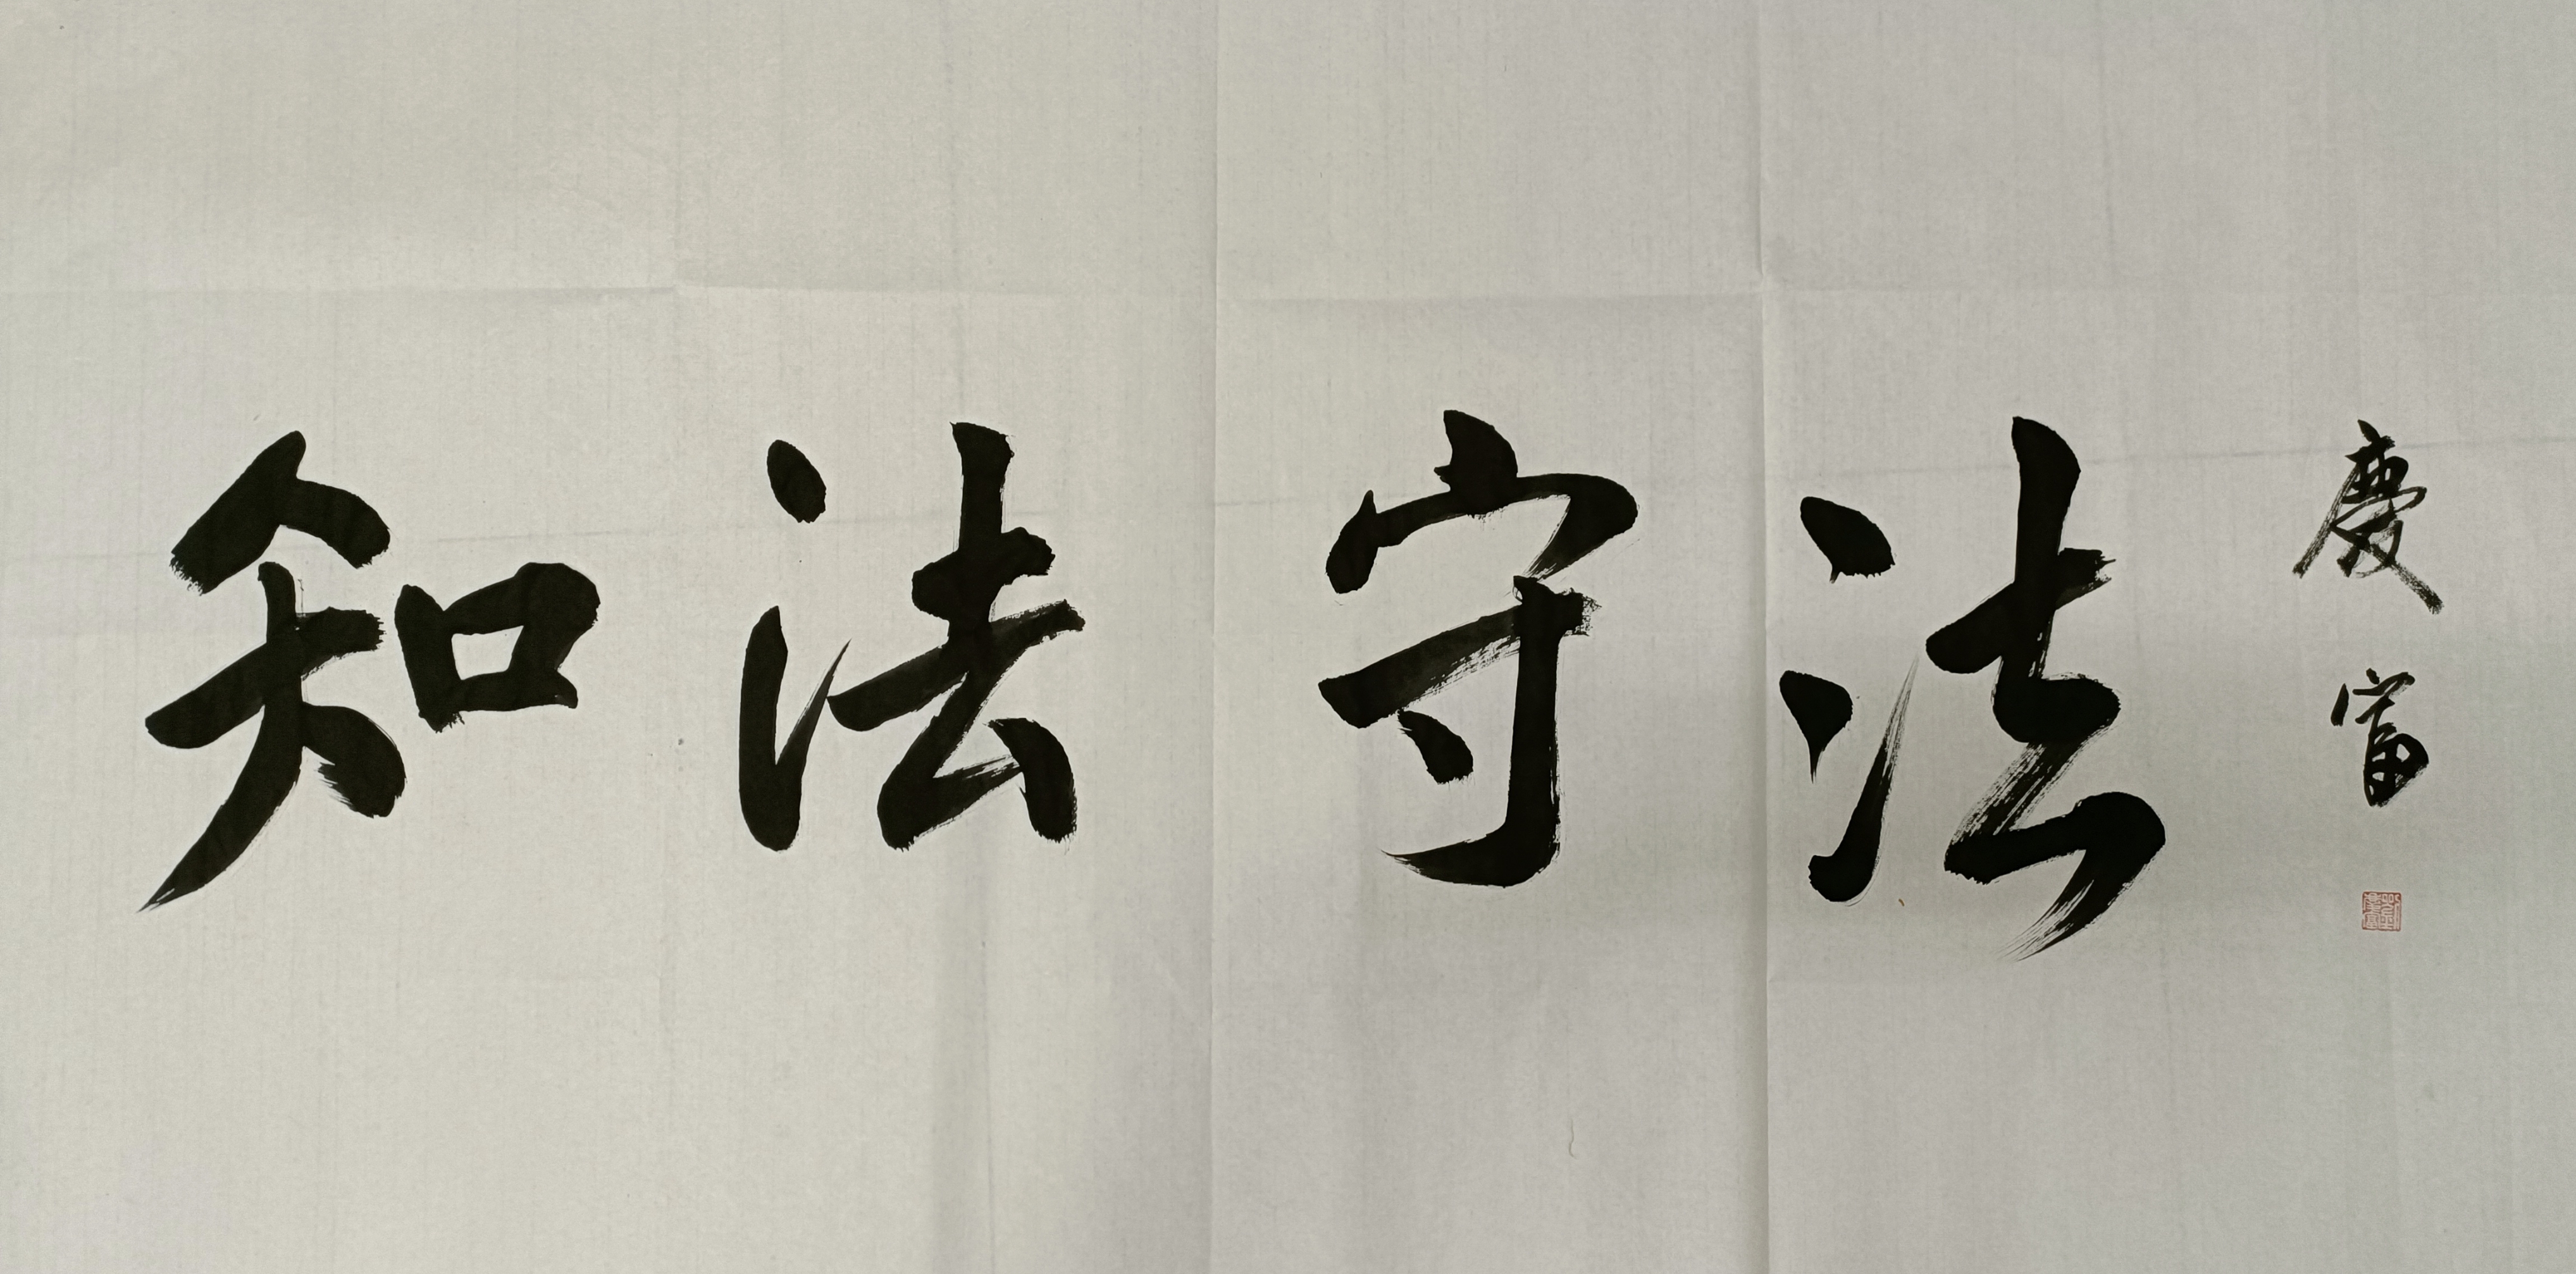 知法守法
慶富